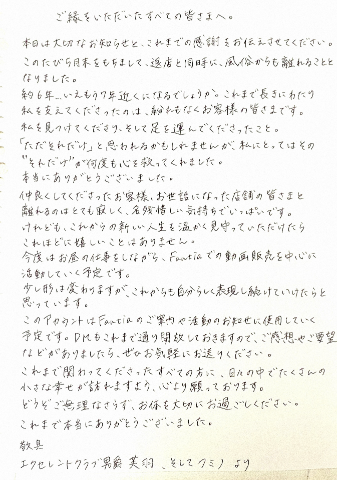 ご縁をいただいたすべての皆さまへ。
本日は大切なお知らせと、これまでの感謝をお伝えさせてください。
このたび月末をもちまして、退店と同時に、風俗からも離れることと
なりました。
約6年…いえもう7年近くになるでしょうか。これまで長きにわたり
私を支えてくださったのは、紛れもなくお客様の皆さまです。
私を見つけてくださり、そして足を運んでくださったこと。
「ただそれだけ」と思われるかもしれませんが、私にとってはその
"それだけ"が何度も心を救ってくれました。
本当にありがとうございました。
仲良くしてくださったお客様、お世話になった店舗の皆さまと
離れるのはとても寂しく、名残惜しい気持ちでいっぱいです。
けれども、これからの新しい人生を温かく見守っていただけたら
これほどに嬉しいことはありません。
今度はお昼の仕事をしながら、Fantiaでの動画販売を中心に
活動していく予定です。
少し形は変わりますが、これからも自分らしく表現し続けていけたらと
思っています。
このアカウントはFantiaのご案内や活動のお知らせに使用していく
予定です。DMもこれまで通り開放しておきますので、ご感想やご要望
などがありましたら、ぜひお気軽にお送りください。
これまで関わってくださったすべての方に、日々の中でたくさんの
小さな幸せが訪れますよう、心より願っております。
どうぞご無理なさらず、お体を大切にお過ごしください。
これまで本当にありがとうございました。
敬具
エクセレントクラブ男爵 芙羽、そして フミノ より